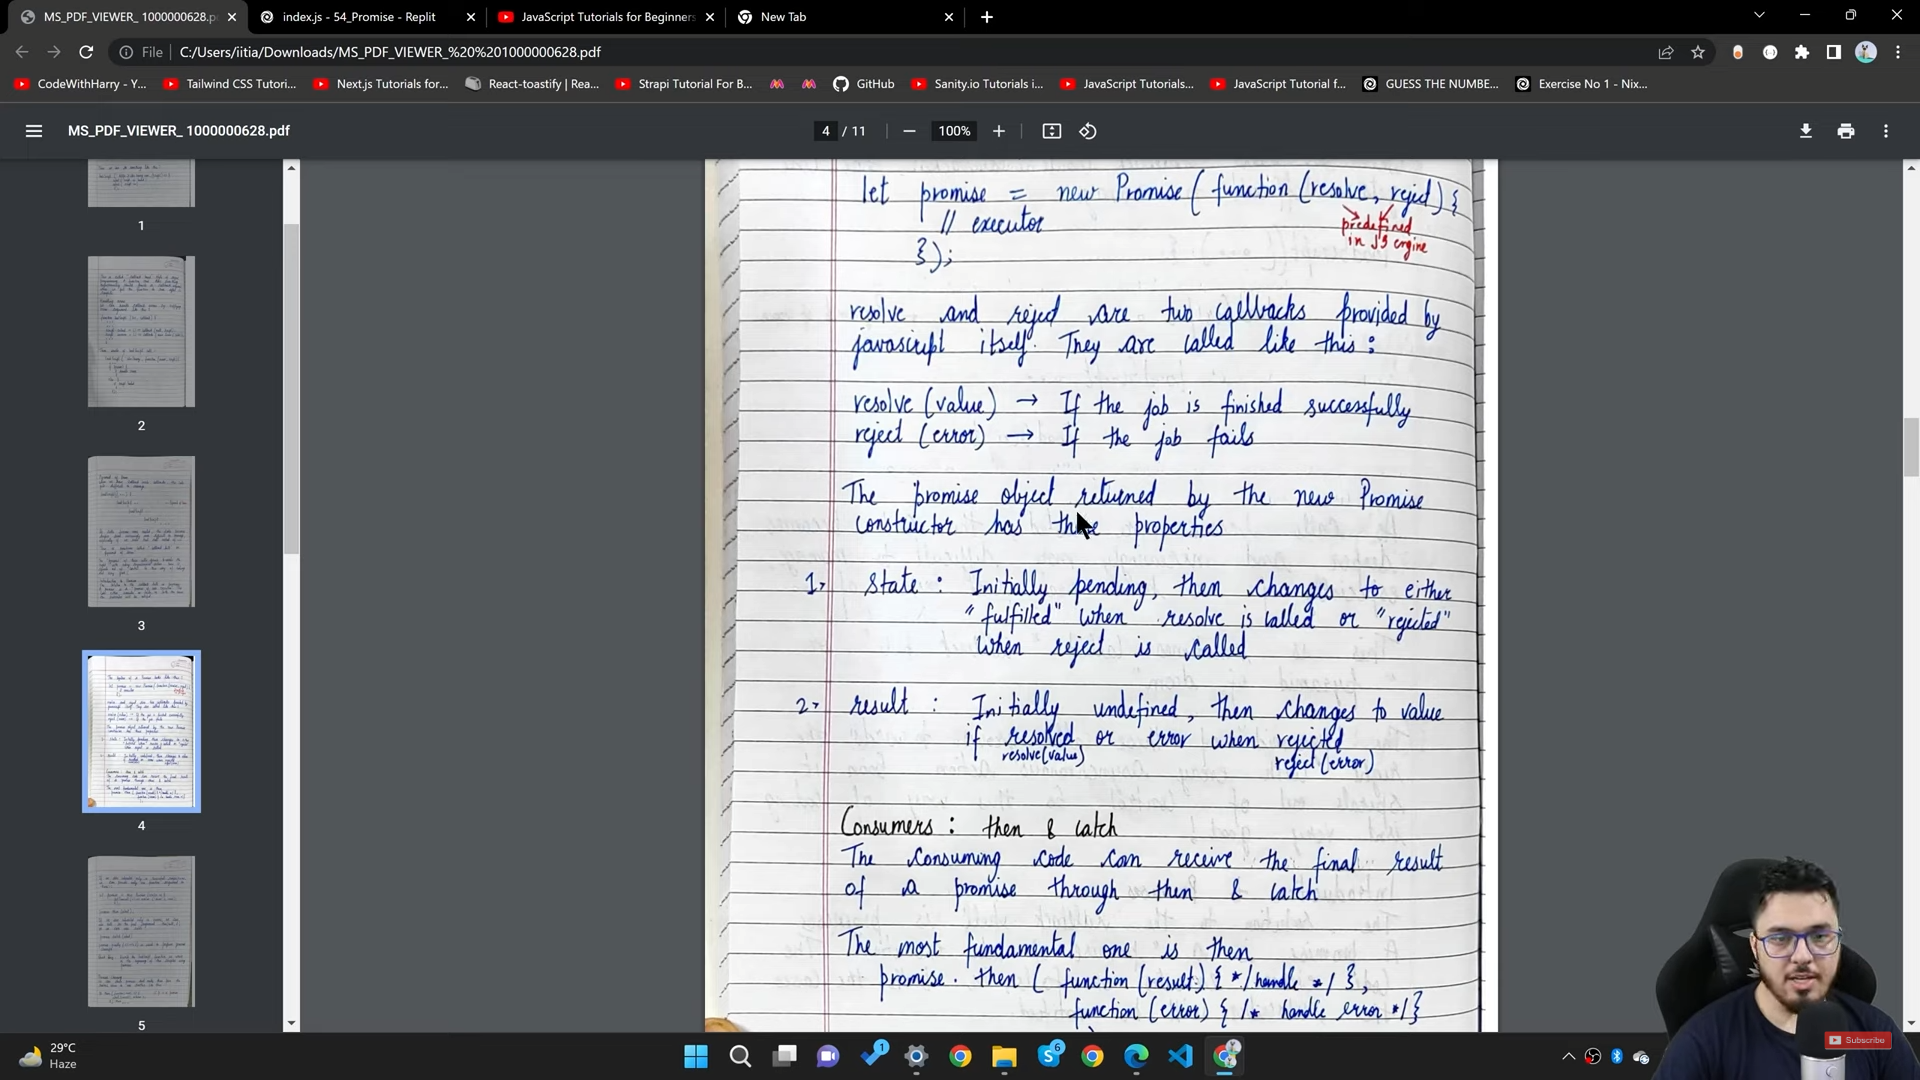 MS_PDF_VIEWER_ 1000000628.p
index.js - 54_Promise - Replit
JavaScript Tutorials for Beginners
New Tab
File
C:/Users/iitia/Downloads/MS_PDF_VIEWER_%20%201000000628.pdf
CodeWithHarry - Y...
Tailwind CSS Tutori...
Next.js Tutorials for...
React-toastify | Rea...
Strapi Tutorial For B...
GitHub
Sanity.io Tutorials i...
JavaScript Tutorials...
JavaScript Tutorial f...
GUESS THE NUMBE...
Exercise No 1 - Nix...
MS_PDF_VIEWER_ 1000000628.pdf
4 / 11
100%
1
2
3
4
5
let promise = new Promise ( function (resolve, reject) {
predefined
// executor
in JS engine
});
resolve and reject are two callbacks provided by
javascript itself. They are called like this :
resolve (value) → If the job is finished successfully
reject (error) → If the job fails
The promise object returned by the new Promise
constructor has these properties
1. state : Initially pending, then changes to either
"fulfilled" when resolve is called or "rejected"
when reject is called
2. result : Initially undefined, then changes to value
if resolved or error when rejected
resolve(value)
reject (error)
Consumers : then & catch
The consuming code can receive the final result
of a promise through then & catch
The most fundamental one is then
promise. then ( function (result) { */handle */ },
function (error) { /* handle error */}
29°C
Haze
1
6
Subscribe